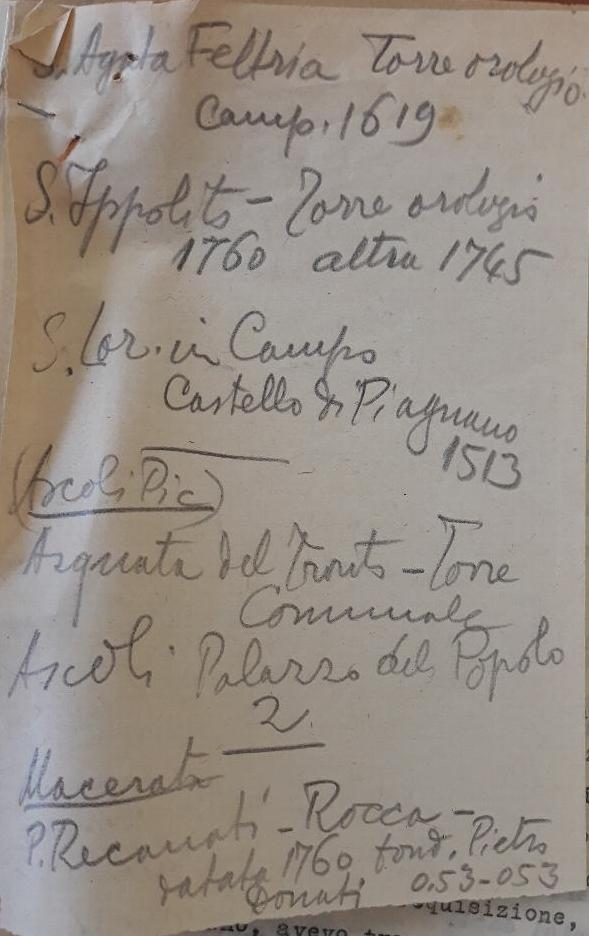 S. Agata Feltria Torre orologio.
Camp. 1619
S. Ippolito - Torre orologio
1760 altra 1745
S. Lor. in Campo
Castello di Piagnano
1513
(Ascoli Pic)
Arquata del Tronto - Torre
Comunale
Ascoli Palazzo del Popolo
2
Macerata
P. Recanati - Rocca -
datata 1760, fond. Pietro
Donati 0.53-053
requisizione,
avevo